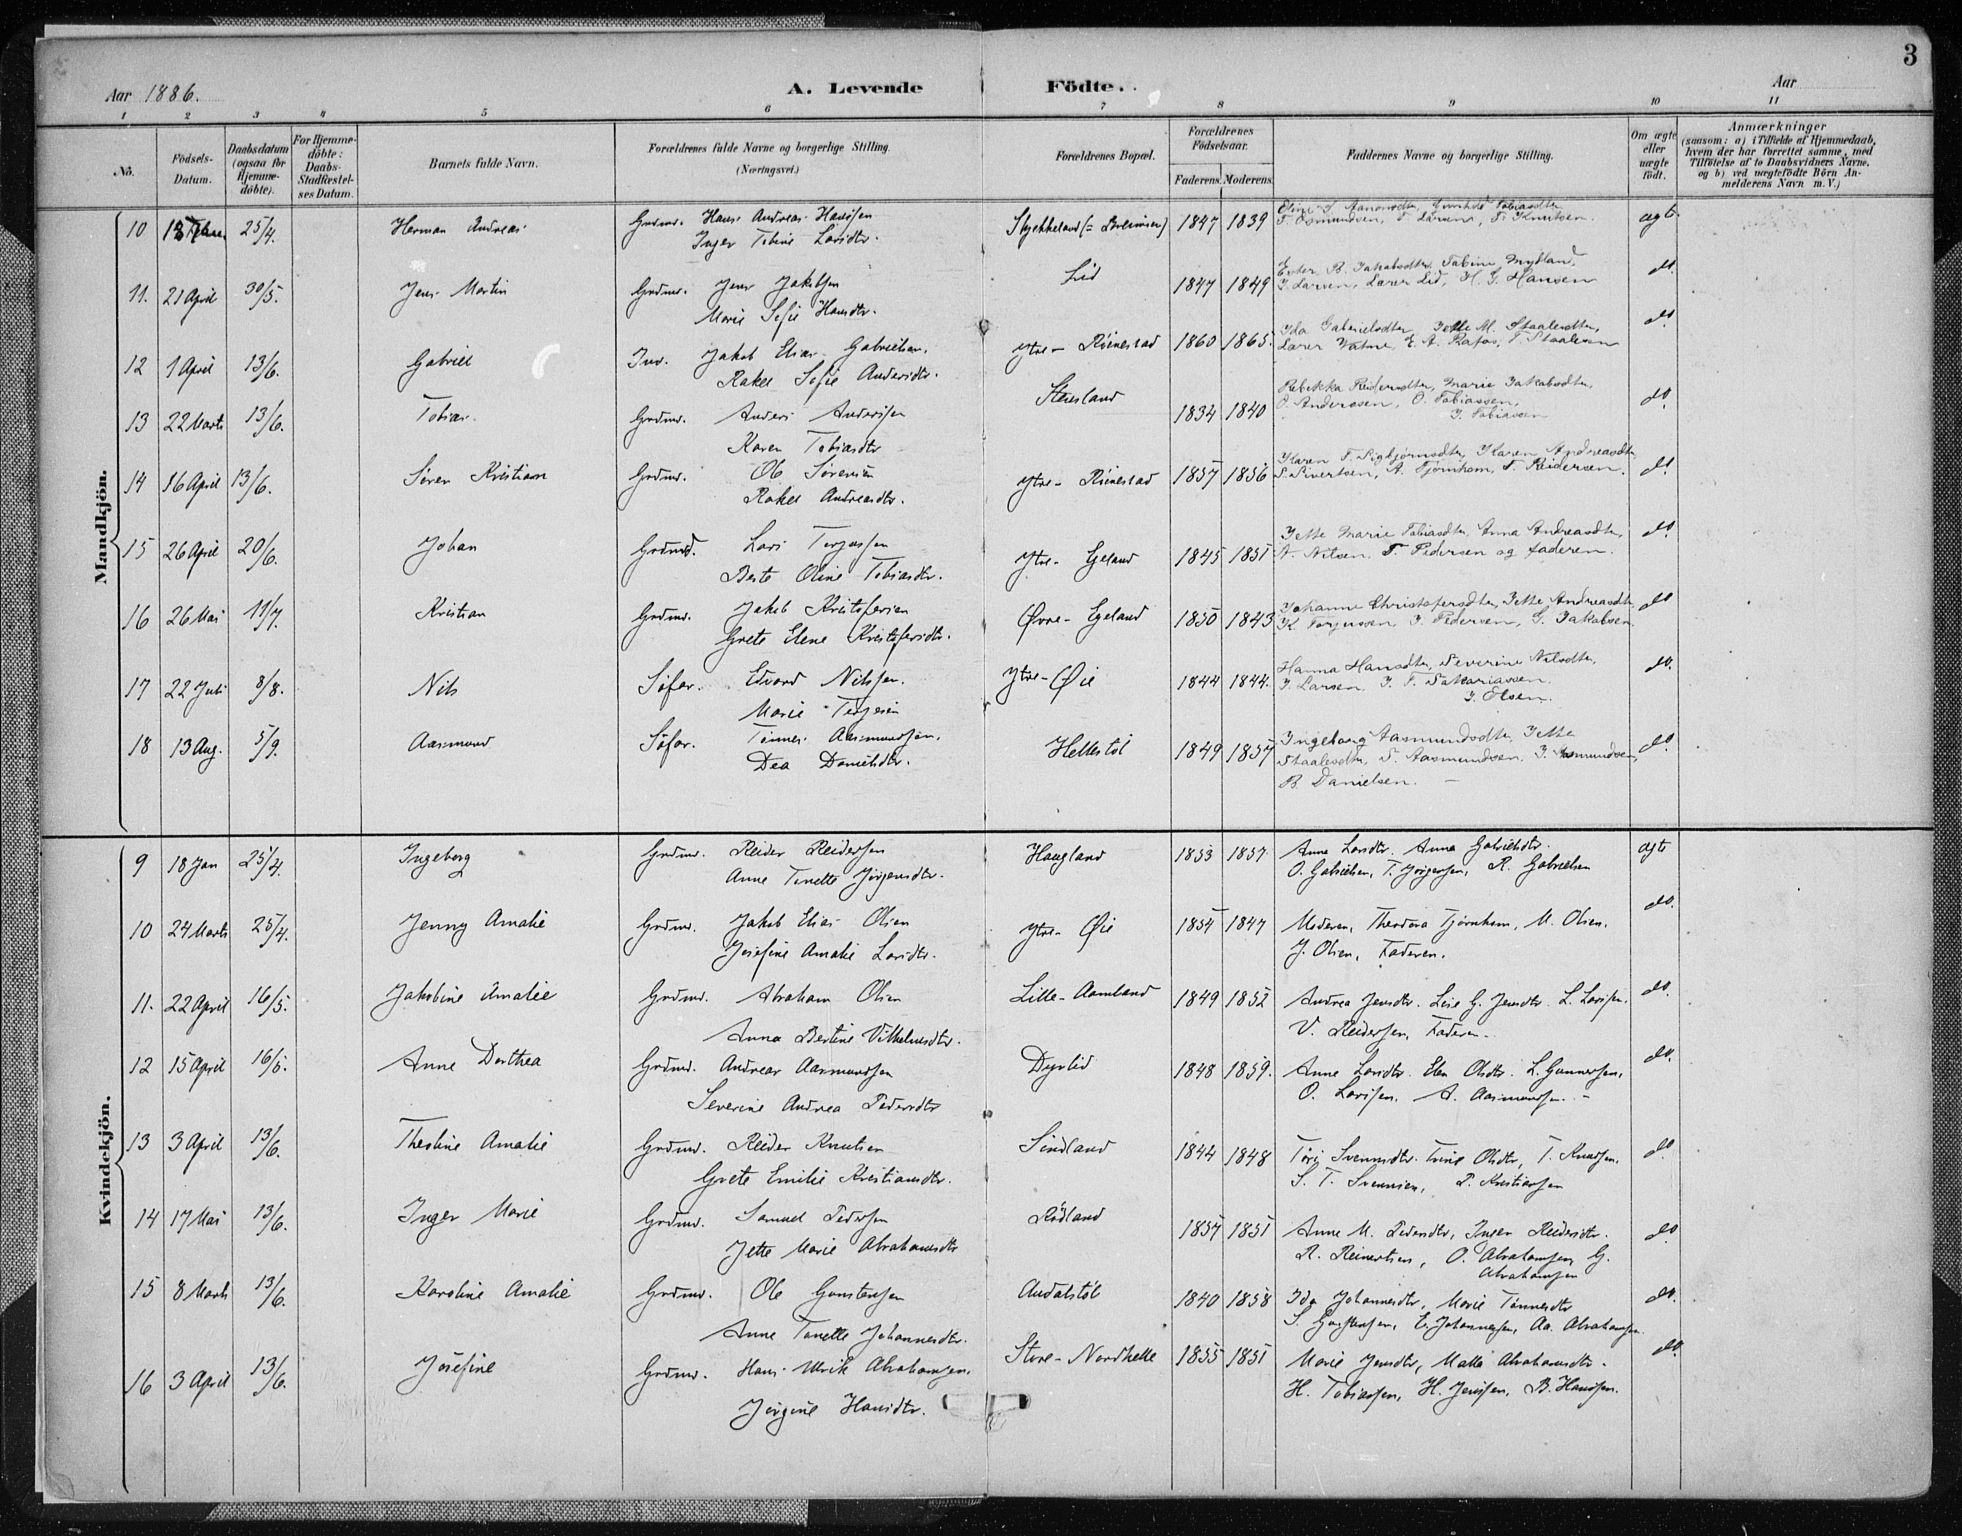 3
Aar 1886. A. Levende Födte. Aar
1 2 3 4 5 6 7 8 9 10 11
No. Födsels-Datum. Daabsdatum (ogsaa for Hjemmedöbte). For Hjemmedöbte: Daabs-Stadfæstelses Datum. Barnets fulde Navn. Forældrenes fulde Navne og borgerlige Stilling. (Næringsvei.) Forældrenes Bopæl. Forældrenes Födselsaar. Faderens. Moderens. Faddernes Navne og borgerlige Stilling. Om ægte eller uægte födt. Anmærkninger (saasom: a) i Tilfælde af Hjemmedaab, hvem der har forrettet samme, med Tilföielse af to Daabsvidners Navne, og b) ved uægtefödte Börn Anmelderens Navn m. V.)
Mandkjön.
10 25/4. Herman Andreas Grdmd. Hans Andreas Hanssen 1847 1839 Tobiasdtr. ægte
Inger Tobine Larsdtr. T. Osmundsen, T. Larsen, T. Knutsen.
11. 21 April 30/5. Jens Martin Grdmd. Jens Jakobsen Lid 1847 1849 Ester B. Jakobsdtr, Tobine Mydland, do.
Marie Sofie Hansdtr. J. Larsen, Lærer Lid, H. G. Hansen
12 1 April 13/6. Gabriel Ind. Jakob Elias Gabrielsen. Ytre- Risnestad 1860 1865. Ida Gabrielsdtr, Jette M. Staalesdtr, do.
Rakel Sofie Andersdtr. Lærer Vatne, E. A. Rafos, T. Staalesen
13 22 Marts 13/6. Tobias. Grdmd. Anders Anderssen Stensland 1834 1840 Rebekka Reidersdtr, Marie Jakobsdtr, do.
Karen Tobiasdtr O. Anderssen, O. Tobiassen,
J. Tobiassen
14 16 April 13/6. Søren Kristian Grdmd. Ole Sørensen Ytre- Risnestad 1857 1856 Karen T. Sigbjørnsdtr, Karen Andreasdtr, do.
Rakel Andreasdtr. S. Sivertsen, A. Tjørnhom, T. Reidersen.
15 26 April 20/6. Johan Grdmd. Lars Terjessen Ytre- Egeland 1845 1851 Jette Marie Tobiasdtr, Anna Andreasdtr, do.
Berte Oline Tobiasdtr. N. Nilsen, T. Pedersen og faderen.
16 26 Mai 11/7. Kristian Grdmd. Jakob Kristofersen Øvre- Egeland 1850 1843 Johanne Christofersdtr, Jette Andreasdtr, do
Grete Elene Kristofersdtr. K. Torjussen, J. Pedersen, G. Jakobsen.
17 22 Juli 8/8. Nils Søfar. Edvard Nilssen. Ytre- Øie 1844 1844. Hanna Hansdtr, Severine Nilsdtr, do.
Marie Terjesen J. Larsen, J. T. Sakariassen.
J. Olsen.
18 13 Aug. 5/9. Aasmund Søfar. Tønnes Aasmundsen. Hellestøl 1849 1857 Ingeborg Aasmundsdtr, Jette do
Dea Danielsdtr. Staalesdtr, S. Aasmundsen, J. Aasmundsen,
B. Danielsen.
Kvindekjön.
9 18 Jan 25/4. Ingeborg Grdmd. Reider Reidersen Haugland 1853 1857 Anne Larsdtr. Anna Gabrielsdtr. ægte
Anne Tonette Jørgensdtr. O. Gabrielsen, T. Jørgensen, R. Gabrielsen
10 24 Marts 25/4. Jenny Amalie Grdmd. Jakob Elias Olsen Ytre- Øie 1854 1847 Moderen, Theodora Tjørnhom, M. Olsen. do.
Josefine Amalie Larsdtr. J. Olsen, Faderen.
11. 22 April 16/5. Jakobine Amalie Grdmd. Abraham Olsen Lille- Aamland 1849 1852 Andrea Jensdtr. Lise G. Jensdtr. L. Larssen, do.
Anna Bertine Vilhelmsdtr. V. Reidersen, Faderen.
12 15 April 16/5. Anne Dorthea Grdmd. Andreas Aasmundsen Dyrlid 1848 1859. Anne Larsdtr. Elen Olsdtr. L. Gunnersen, do.
Severine Andrea Pedersdtr O. Larssen, A. Aasmundsen. -
13 3 April 13/6. Theoline Amalie Grdmd. Reider Knutsen Sindland 1844 1848 Tøri Svennsdtr. Trine Olsdtr, T. Knudsen. do.
Grete Emilie Kristiansdtr. S. T. Svennsen, P. Kristiansen
14 17 Mai 13/6. Inger Marie Grdmd. Samuel Pedersen Rødland 1857 1851 Anne M. Pedersdtr, Inger Reidersdtr. do
Jette Marie Abrahamsdtr R. Reinertsen, O. Abrahamsen, G.
Abrahamsen
15 8 Marts 13/6. Karoline Amalie Grdmd. Ole Gunstensen Audalstøl 1840 1858 Ida Johannesdtr, Marie Tønnesdtr do.
Anne Tonette Johannesdtr. S. Gunstensen, E. Johannessen, Aa. Abrahamsen.
16 3 April 13/6. Josefine Grdmd. Hans Ulrik Abrahamsen. Store- Nordhelle 1855 1851 Marie Jensdtr, Malla Abrahamsdtr. do.
Jørgine Hansdtr. H. Tobiassen, H. Jenssen, B. Hanssen.